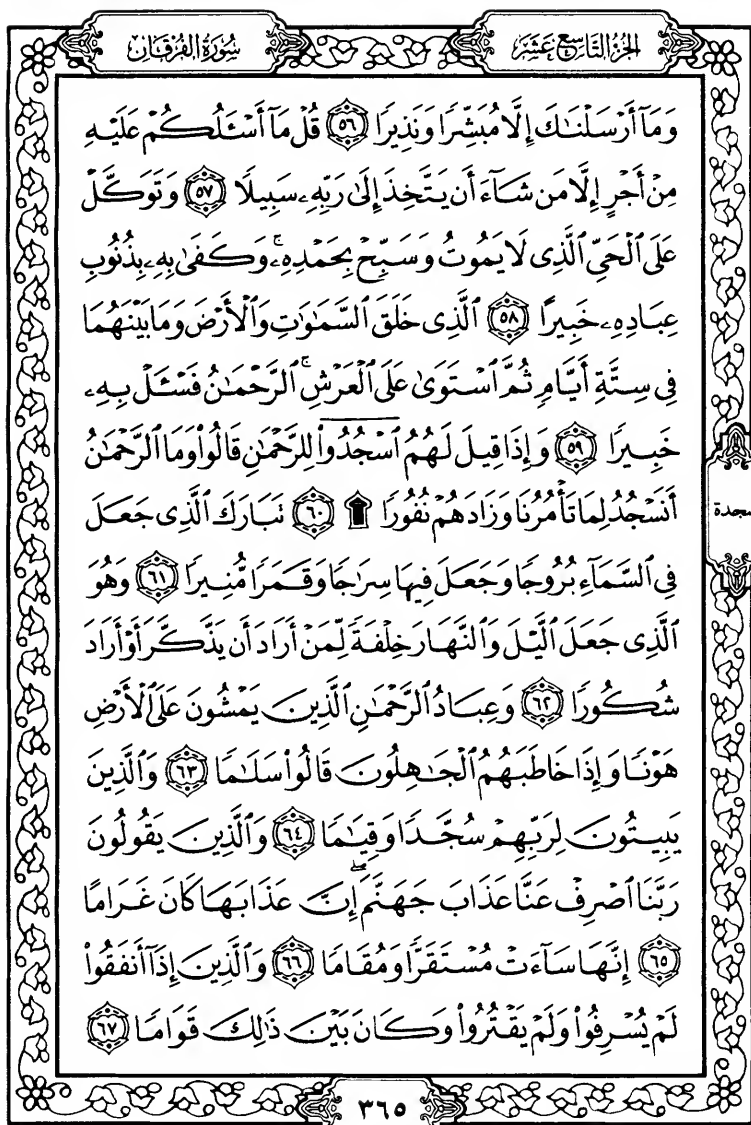 سُورَةُ الفُرْقَان
الجُزْءُ التَّاسِعَ عَشَر
وَمَآ أَرۡسَلۡنَٰكَ إِلَّا مُبَشِّرٗا وَنَذِيرٗا ٥٦ قُلۡ مَآ أَسۡـَٔلُكُمۡ عَلَيۡهِ
مِنۡ أَجۡرٍ إِلَّا مَن شَآءَ أَن يَتَّخِذَ إِلَىٰ رَبِّهِۦ سَبِيلٗا ٥٧ وَتَوَكَّلۡ
عَلَى ٱلۡحَيِّ ٱلَّذِى لَا يَمُوتُ وَسَبِّحۡ بِحَمۡدِهِۦۚ وَكَفَىٰ بِهِۦ بِذُنُوبِ
عِبَادِهِۦ خَبِيرًا ٥٨ ٱلَّذِى خَلَقَ ٱلسَّمَٰوَٰتِ وَٱلۡأَرۡضَ وَمَا بَيۡنَهُمَا
فِى سِتَّةِ أَيَّامٖ ثُمَّ ٱسۡتَوَىٰ عَلَى ٱلۡعَرۡشِۚ ٱلرَّحۡمَٰنُ فَسۡـَٔلۡ بِهِۦ
خَبِيرٗا ٥٩ وَإِذَا قِيلَ لَهُمُ ٱسۡجُدُواْ لِلرَّحۡمَٰنِ قَالُواْ وَمَا ٱلرَّحۡمَٰنُ
أَنَسۡجُدُ لِمَا تَأۡمُرُنَا وَزَادَهُمۡ نُفُورٗا ۩ ٦٠ تَبَارَكَ ٱلَّذِى جَعَلَ
سجدة
فِى ٱلسَّمَآءِ بُرُوجٗا وَجَعَلَ فِيهَا سِرَٰجٗا وَقَمَرٗا مُّنِيرٗا ٦١ وَهُوَ
ٱلَّذِى جَعَلَ ٱلَّيۡلَ وَٱلنَّهَارَ خِلۡفَةٗ لِّمَنۡ أَرَادَ أَن يَذَّكَّرَ أَوۡ أَرَادَ
شُكُورٗا ٦٢ وَعِبَادُ ٱلرَّحۡمَٰنِ ٱلَّذِينَ يَمۡشُونَ عَلَى ٱلۡأَرۡضِ
هَوۡنٗا وَإِذَا خَاطَبَهُمُ ٱلۡجَٰهِلُونَ قَالُواْ سَلَٰمٗا ٦٣ وَٱلَّذِينَ
يَبِيتُونَ لِرَبِّهِمۡ سُجَّدٗا وَقِيَٰمٗا ٦٤ وَٱلَّذِينَ يَقُولُونَ
رَبَّنَا ٱصۡرِفۡ عَنَّا عَذَابَ جَهَنَّمَۖ إِنَّ عَذَابَهَا كَانَ غَرَامًا
٦٥ إِنَّهَا سَآءَتۡ مُسۡتَقَرّٗا وَمُقَامٗا ٦٦ وَٱلَّذِينَ إِذَآ أَنفَقُواْ
لَمۡ يُسۡرِفُواْ وَلَمۡ يَقۡتُرُواْ وَكَانَ بَيۡنَ ذَٰلِكَ قَوَامٗا ٦٧
٣٦٥